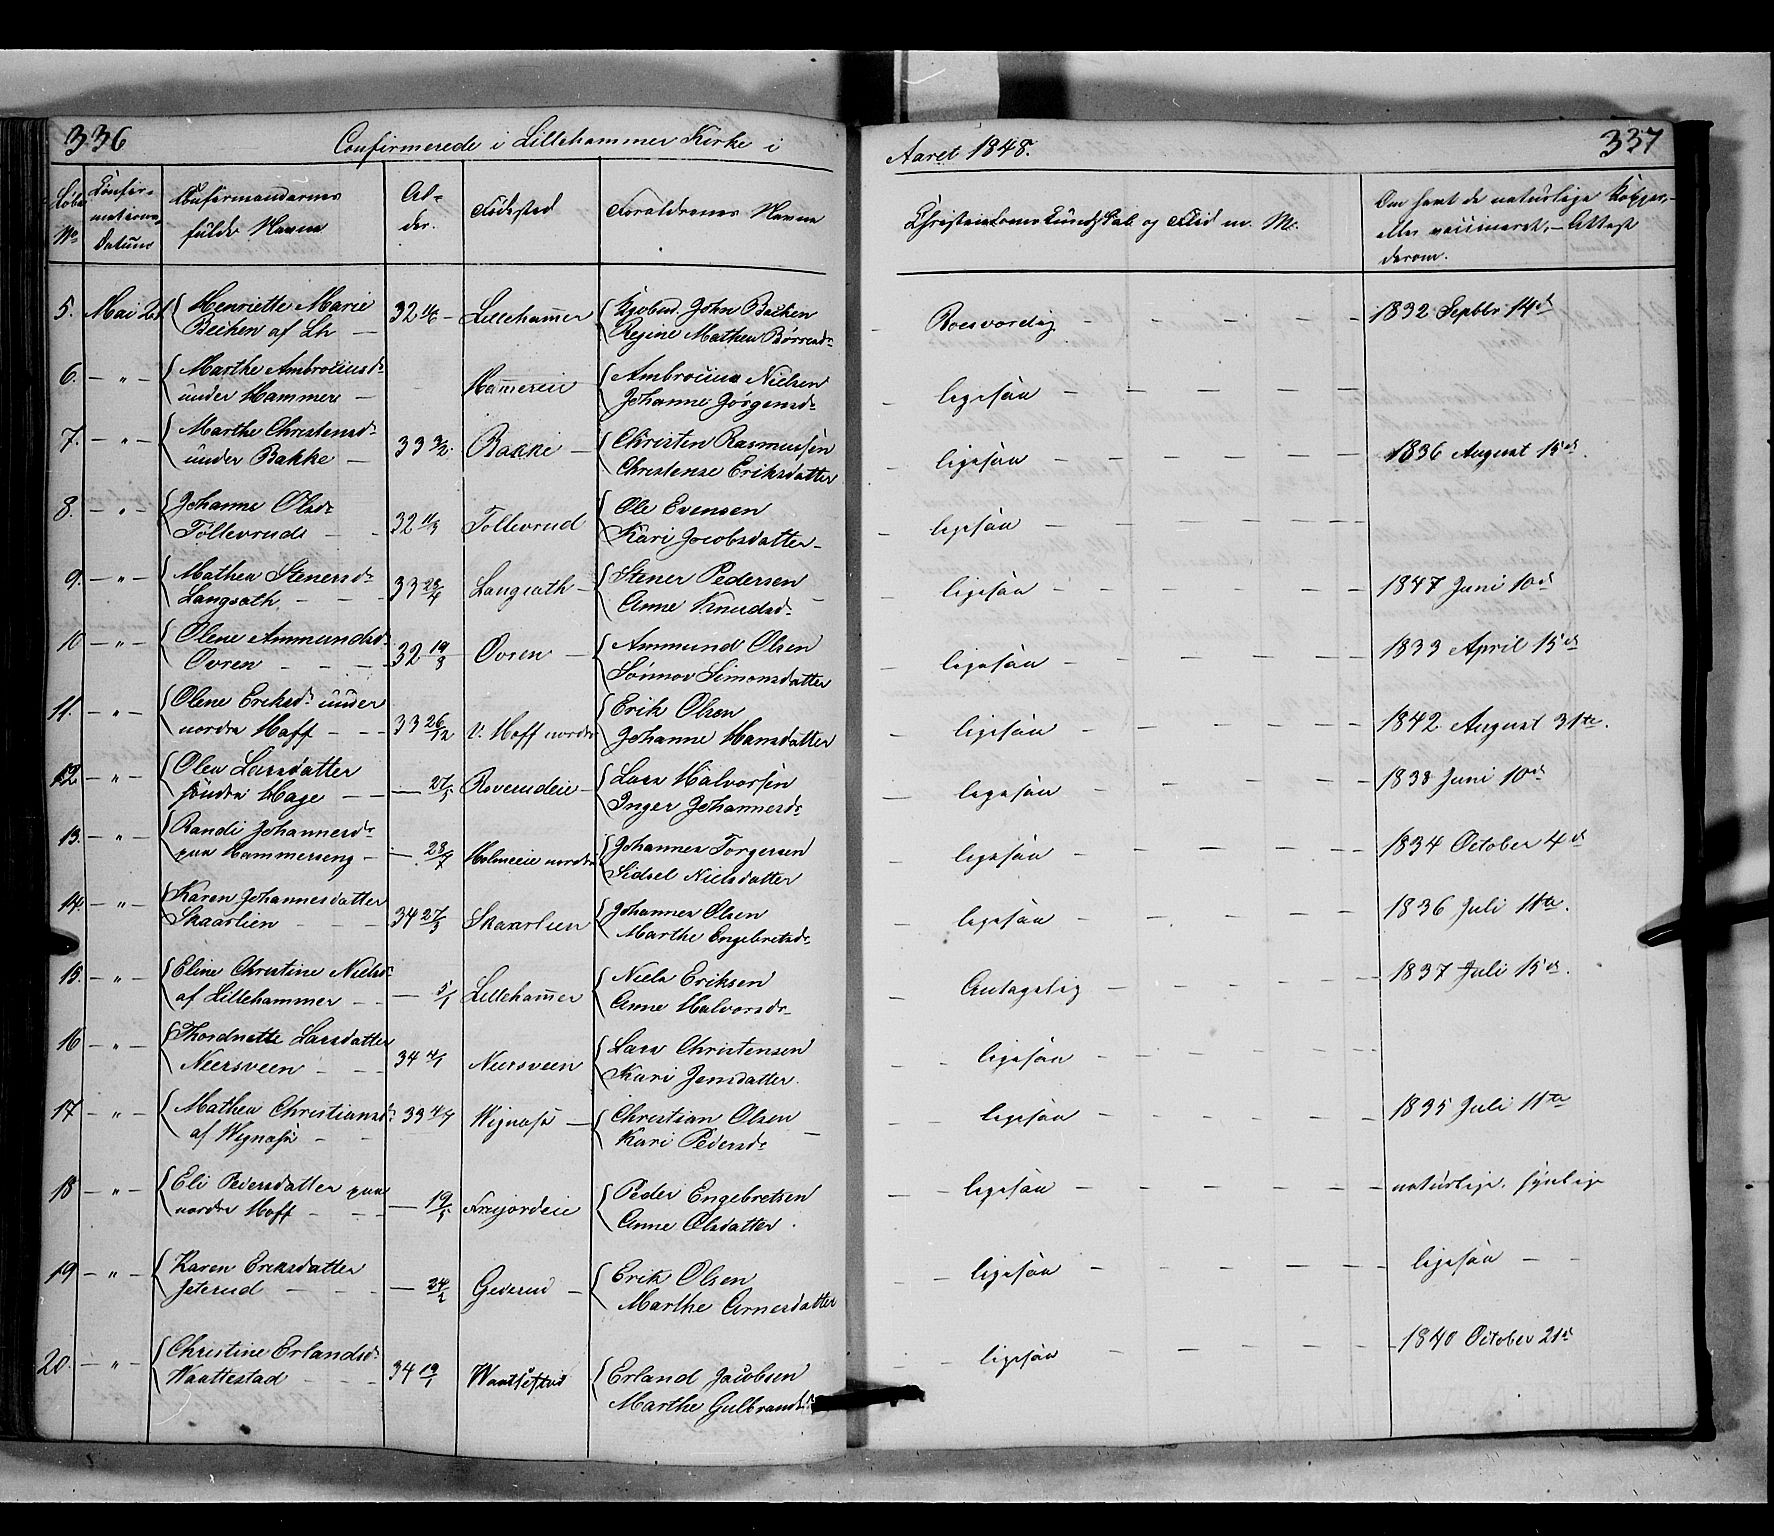 336
Confirmerede i Lillehammer Kirke i
Aaret 1848.
337
Løbe No
Confirmations Datum
Confirmandernes fulde Navne
Alder.
Fødested
Forældrenes Navne
Christendoms Kundskab og Flid m. M.
Om havt de naturlige Kopper, eller vaccineret, – Attest derom.
5. Mai 21 Henriette Marie
Beichen af Lh – 32 Lillehammer John Beichen
Regine Mathea Børresdr
Roesværdig – 1832 Septbr 14de
6. – " – Marthe Ambrosiusdr
under Hammer – Hammereie Ambrosius Nielsen
Johanne Jørgensdr
ligesaa
7. – " – Marthe Christensdr
under Bakke – 33 3/2 Bakke – Christen Rasmussen
Christense Eriksdatter
ligesaa – 1836 August 15de
8. – " – Johanne Olsdr
Tollevrud – 32 Tollevrud Ole Evensen
Kari Jacobsdatter –
ligesaa
9. – " – Mathea Stenersdr
Langsæth – 33 28/4 Langsæth – Stener Pedersen
Anne Knudsdr
ligesaa – 1847 Juni 10de
10 – " – Olene Ammundsdr
Ovren – 32 19/3 Ovren – Ammund Olsen
Sønnov Simonsdatter
ligesaa – 1833 April 15de
11. – " – Olene Eriksdr under
nordre Hoff – 33 26/12 U. Hoff nordre Erik Olsen
Johanne Hansdatter
ligesaa – 1842 August 31te.
12 – " – Olea Larsdatter
søndre Hage – 27/5 Roverudeie – Lars Halvorsen
Inger Johannesdr
ligesaa – 1838 Juni 10de
13. – " – Randi Johannesdr
paa Hammerseng – 28/7 Holmeeie nordre Johannes Torgersen
Sidsel Nielsdatter
ligesaa – 1834 October 4de
14. – " – Karen Johannesdatter
Skaarlien – 34 27/3 Skaarlien Johannes Olsen
Marthe Engebretsdr
ligesaa – 1836 Juli 11te.
15. – " – Eline Christine Nielsdr
af Lillehammer – 5/1 Lillehammer Niels Eriksen
Anne Halvorsdr
Antagelig – 1837 Juli 15de.
16 – " – Larsdatter
Neersveen – 34 4/1 Neersveen Lars Christensen
Kari Jensdatter.
ligesaa
17 – " – Mathea Christiansdr
af Wignæs – 33 4/7 Wignæs – Christian Olsen
Kari Pedersdr
ligesaa – 1835 Juli 11te
18 – " – Eli Pedersdatter paa
nordre Hoff – 19/5 Peder Engebretsen
Anne Olsdatter.
ligesaa – naturlige, synlige
19 – " – Karen Eriksdatter
Jeterud – 24/2 Gederud – Erik Olsen
Marthe Arnesdatter
ligesaa – ligesaa –
20. – " – Christine Erlandsdr
Waattestad – 34 19/1 Erland Jacobsen
Marthe Gulbrandsdr
ligesaa – 1840 October 21de